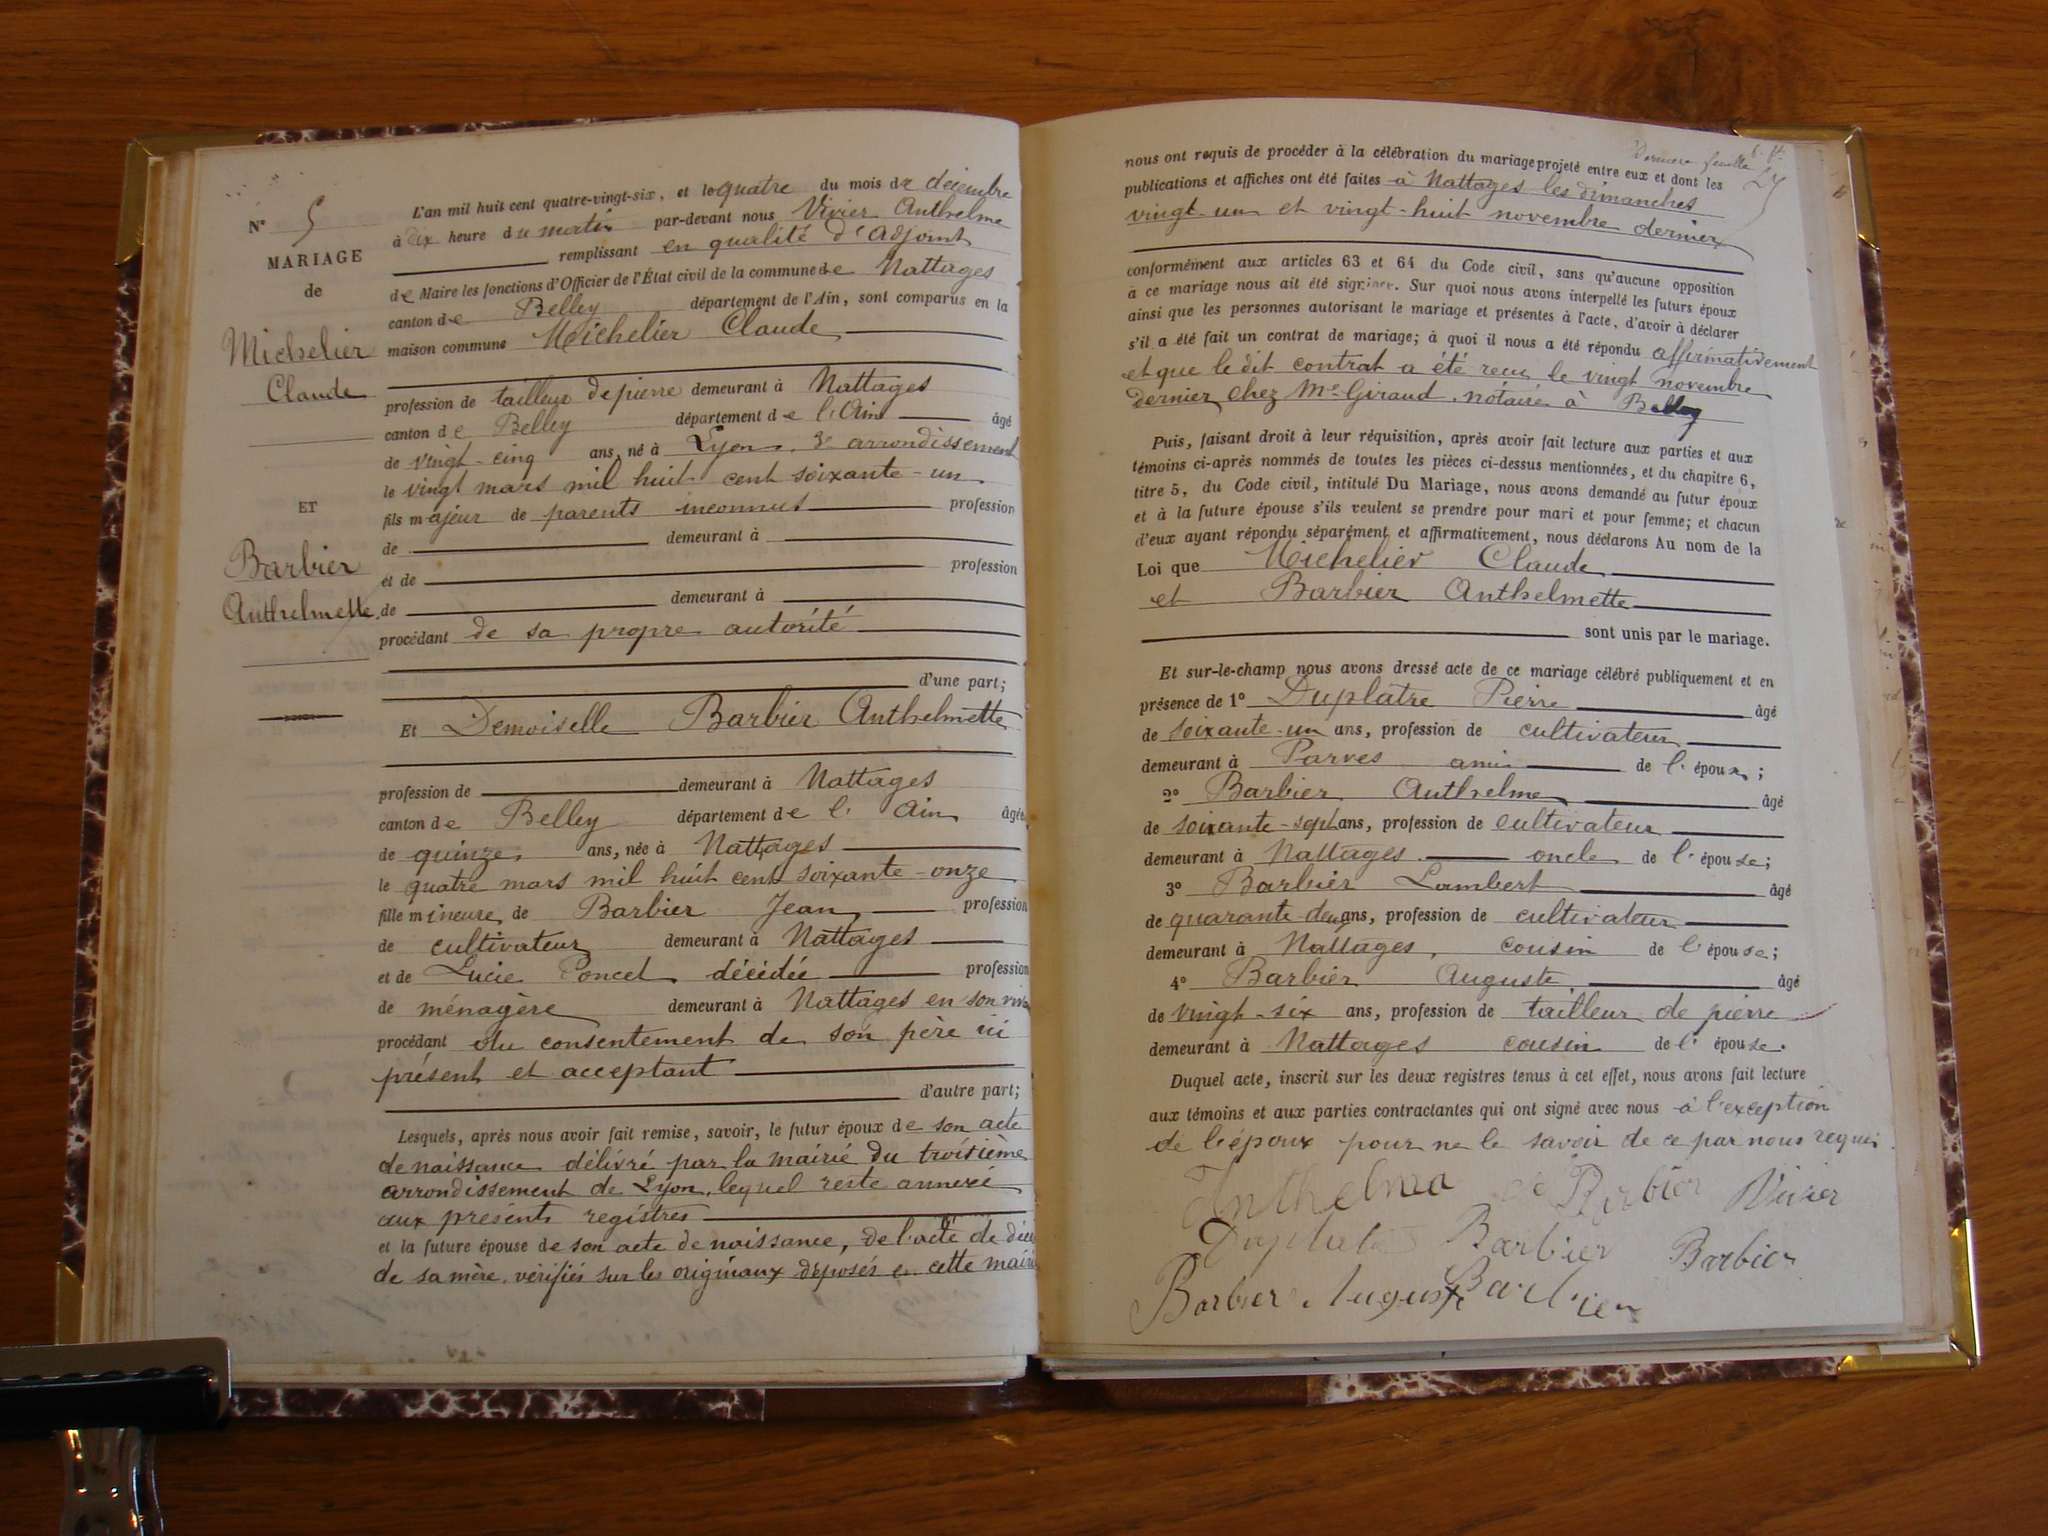 N° 5
MARIAGE
de
Michelier
Claude
ET
Barbier
Anthelmette
L'an mil huit cent quatre-vingt-six, et le quatre du mois de décembre
à dix heure du matin par-devant nous Vivier Anthelme
remplissant en qualité d'adjoint
de Maire les fonctions d'Officier de l'État civil de la commune de Nattages
canton de Belley département de l'Ain, sont comparus en la
maison commune Michelier Claude
profession de tailleur de pierre demeurant à Nattages
canton de Belley département de l'Ain âgé
de vingt-cinq ans, né à Lyon, 3e arrondissement
le vingt mars mil huit cent soixante-un
fils majeur de parents inconnus profession
de demeurant à
et de profession
de demeurant à
procédant de sa propre autorité
d'une part;
Et Demoiselle Barbier Anthelmette
profession de demeurant à Nattages
canton de Belley département de l'Ain âgée
de quinze ans, née à Nattages
le quatre mars mil huit cent soixante-onze
fille mineure de Barbier Jean profession
de cultivateur demeurant à Nattages
et de Lucie Poncet décédée profession
de ménagère demeurant à Nattages en son
procédant du consentement de son père ici
présent et acceptant
d'autre part;
Lesquels, après nous avoir fait remise, savoir, le futur époux de son acte
de naissance délivré par la mairie du troisième
arrondissement de Lyon, lequel reste annexé
aux présents registres
et la future épouse de son acte de naissance, de l'acte de
de sa mère, vérifiés sur les originaux déposés en cette
Dernière feuille
nous ont requis de procéder à la célébration du mariage projeté entre eux et dont les
publications et affiches ont été faites à Nattages les dimanches
vingt-un et vingt-huit novembre dernier
conformément aux articles 63 et 64 du Code civil, sans qu'aucune opposition
à ce mariage nous ait été signifiée. Sur quoi nous avons interpellé les futurs époux
ainsi que les personnes autorisant le mariage et présentes à l'acte, d'avoir à déclarer
s'il a été fait un contrat de mariage; à quoi il nous a été répondu affirmativement
et que le dit contrat a été reçu le vingt novembre
dernier chez Me Giraud, notaire à Belley
Puis, faisant droit à leur réquisition, après avoir fait lecture aux parties et aux
témoins ci-après nommés de toutes les pièces ci-dessus mentionnées, et du chapitre 6,
titre 5, du Code civil, intitulé Du Mariage, nous avons demandé au futur époux
et à la future épouse s'ils veulent se prendre pour mari et pour femme; et chacun
d'eux ayant répondu séparément et affirmativement, nous déclarons Au nom de la
Loi que Michelier Claude
et Barbier Anthelmette
sont unis par le mariage.
Et sur-le-champ nous avons dressé acte de ce mariage célébré publiquement et en
présence de 1° Duplatre Pierre âgé
de soixante-un ans, profession de cultivateur
demeurant à Parves ami de l'époux;
2° Barbier Anthelme âgé
de soixante-sept ans, profession de cultivateur
demeurant à Nattages oncle de l'épouse;
3° Barbier Lambert âgé
de quarante-deux ans, profession de cultivateur
demeurant à Nattages, cousin de l'épouse;
4° Barbier Auguste, âgé
de vingt-six ans, profession de tailleur de pierre
demeurant à Nattages cousin de l'épouse.
Duquel acte, inscrit sur les deux registres tenus à cet effet, nous avons fait lecture
aux témoins et aux parties contractantes qui ont signé avec nous à l'exception
de l'époux pour ne le savoir de ce par nous requis.
Barbier Vivier
Barbier Barbier
Barbier Auguste Barbier